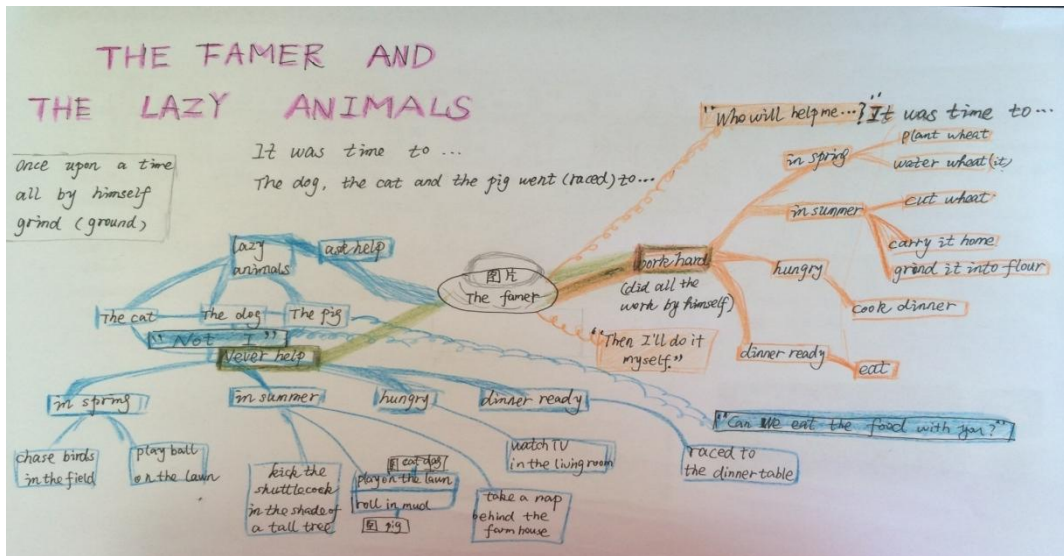 THE FAMER AND
THE LAZY ANIMALS
once upon a time
all by himself
grind (ground)
It was time to ...
The dog, the cat and the pig went (raced) to...
"Who will help me ...?"
It was time to ...
in spring
plant wheat
water wheat (it)
in summer
cut wheat
carry it home
grind it into flour
work hard
(did all the
work by himself)
hungry
cook dinner
dinner ready
eat
图片
The famer
"Then I'll do it
myself."
lazy
animals
ask help
The cat
The dog
The pig
"Not I"
Never help
in spring
chase birds
in the field
play ball
on the lawn
in summer
kick the
shuttlecock
in the shade of
a tall tree
play on the lawn
roll in mud
图 pig
take a nap
behind the
farmhouse
hungry
watch TV
in the living room
dinner ready
raced to
the dinner table
"Can we eat the food with you?"